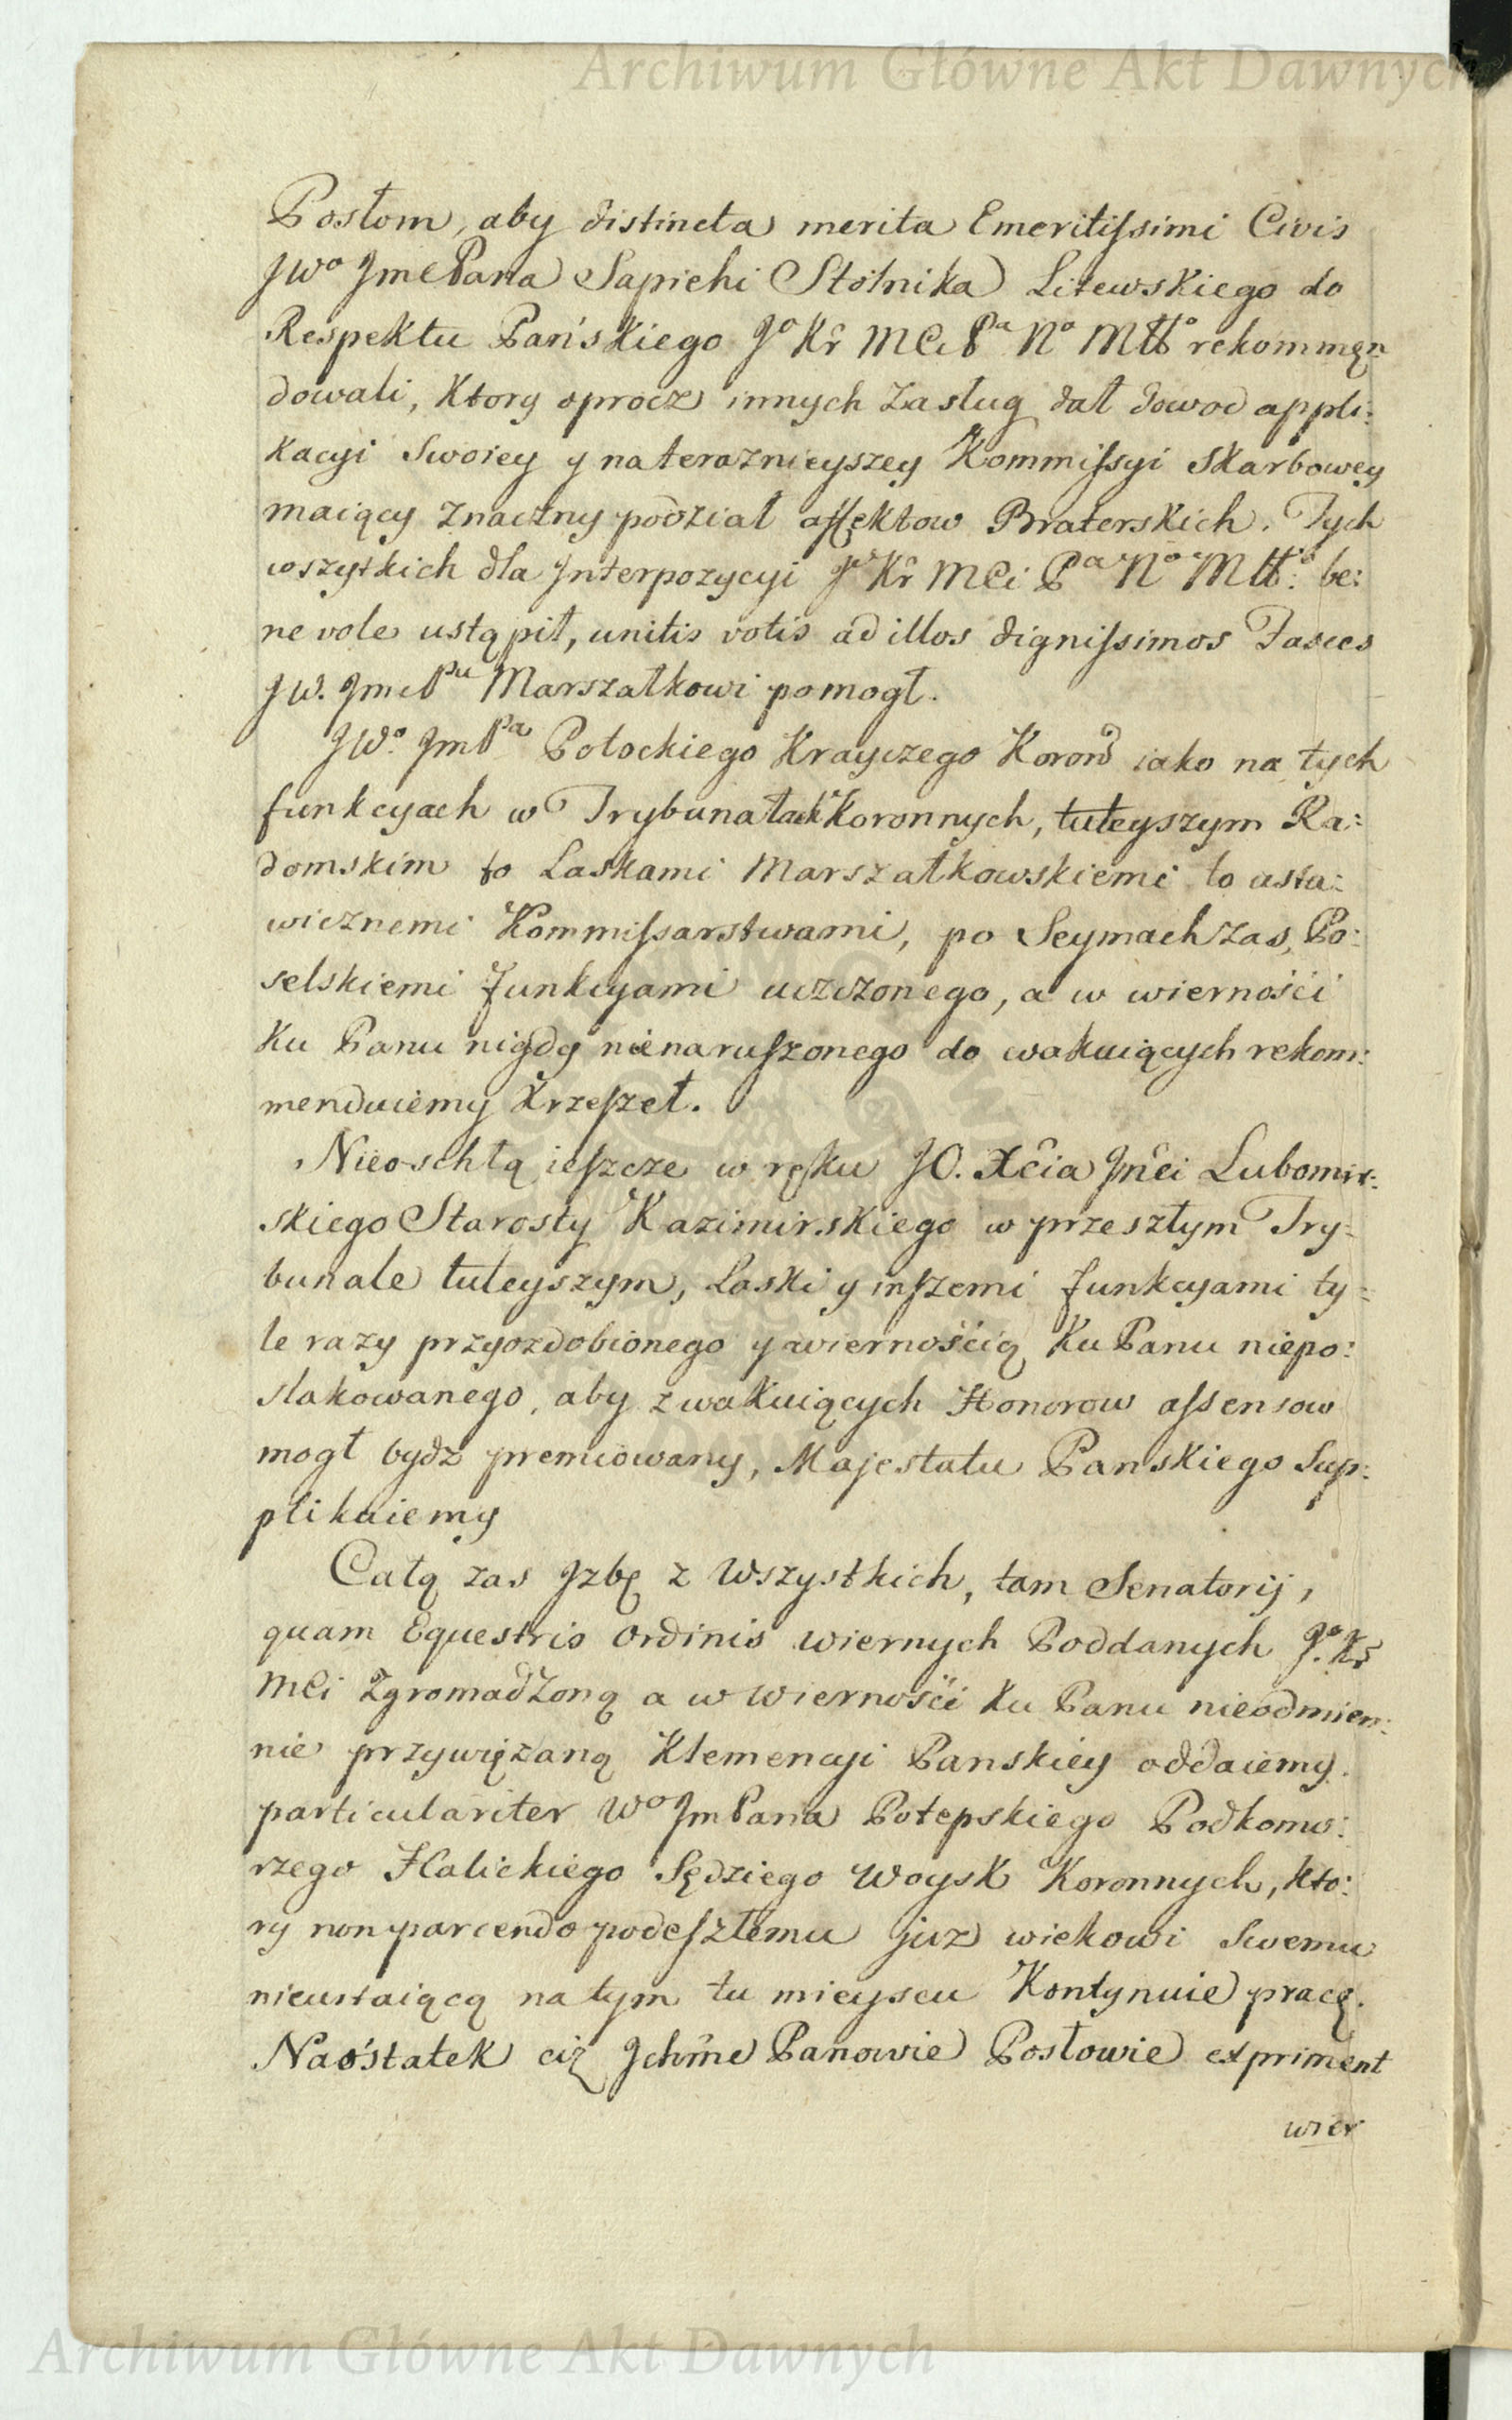 Archiwum Główne Akt Dawnych
Posłom, aby distincta merita Emeritissimi Civis
JWo Jme Pana Sapiehi Stolnika Litewskiego do
Respektu Pańskiego Jo Kr MCi Pa No Mtto rekommęn
dowali, Ktory oprocz innych Zasług dał dowod appli:
kacyi Swoiey y na teraznieyszey Kommissyi Skarbowey
maiący znaczny podział affektow Braterskich. Tych
wszytkich dla Jnterpozycyi Jo Kr MCi Pa No Mtto: be:
nevole ustąpił, unitis votis ad illos dignissimos Fasces
JW. Jmc Pu Marszałkowi pomogł.
JWo. Jm Pa Potockiego Krayczego Koron iako na tych
funkcyach w Trybunałach Koronnych, tuteyszym Ra:
domskim to Laskami Marszałkowskiemi to usta:
wicznemi Kommissarstwami, po Seymach zas, Po:
selskiemi funkcyami uczczonego, a w wierności
ku Panu nigdy nienaruszonego do wakuiących rekom:
menduiemy Krzeszeł.
Nieoschłą ieszcze w ręku JO. Xcia Jmci Lubomir:
skiego Starosty Kazimirskiego w przeszłym Try:
bunale tuteyszym, Laski y inszemi funkcyami ty:
le razy przyozdobionego y wiernością Ku Panu niepo:
slakowanego, aby z wakuiących Honorow assensow
mogł bydz premiowany, Majestatu Panskiego Sup:
plikuiemy
Całą zas Jzbę z Wszystkich, tam Senatorij,
quam Equestris Ordinis wiernych Poddanych Jo. Kr
MCi Zgromadzoną a w wierności ku Panu nieodmien:
nie przywiązaną Klemencyi Panskiey oddaiemy.
particulariter Wo Jm Pana Potepskiego Podkomo:
rzego Halickiego Sędziego Woysk Koronnych, kto:
ry non parcendo podeszłemu juz wiekowi Swemu
nieustaiącą na tym tu mieyscu Kontynuie pracę.
Naostatek ciż Jchme Panowie Posłowie expriment
wier
Archiwum Główne Akt Dawnych